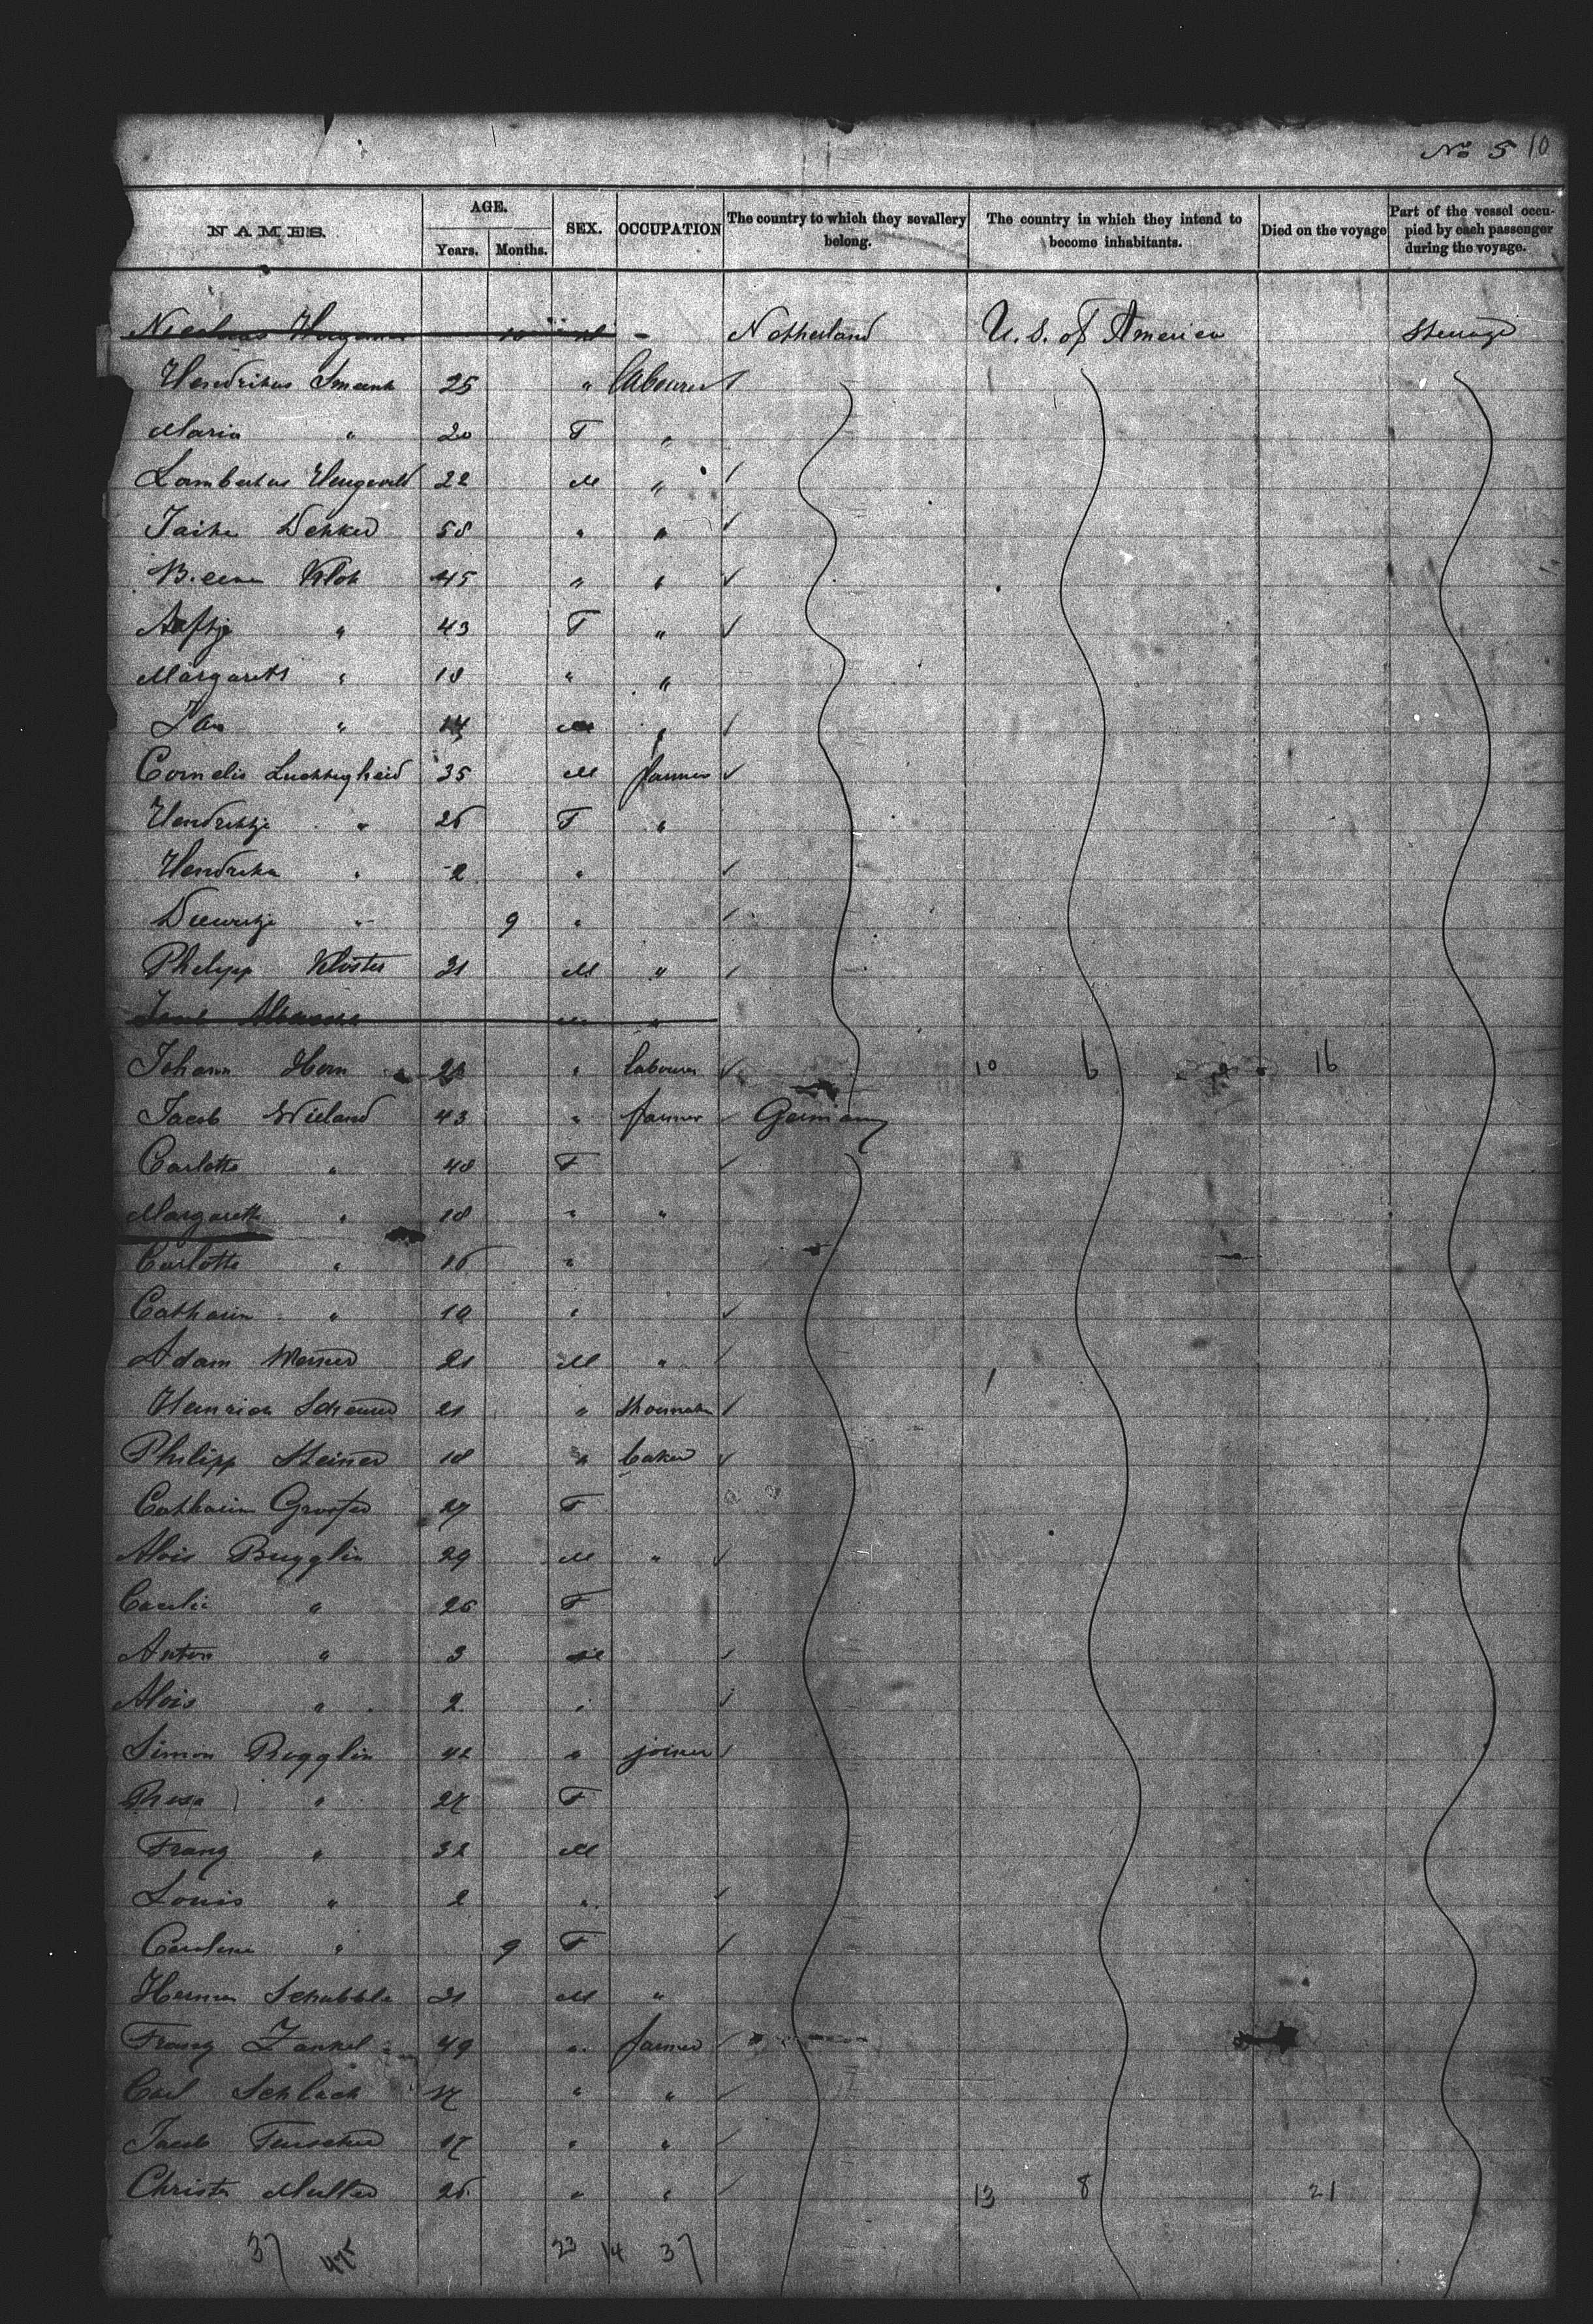 No 5 10
NAMES. AGE. SEX. OCCUPATION The country to which they sevallery belong. The country in which they intend to become inhabitants. Died on the voyage Part of the vessel occupied by each passenger during the voyage.
Years. Months.
Nicolaas - Netherland U. S. of America Steerage
Hendrikus Smeenk 25 " labourer
Maria " 20 F "
Lambertus Hengeveld 22 M "
Dekker 58 " "
Klok 45 " "
Aaftje " 43 F "
Margareth " 18 " "
Jan " 14 M "
Cornelis Luchtigheid 35 M farmer
Hendrikje " 26 F "
Hendrika " 2 "
" 9 "
Philipp Kloster 31 M "
M "
Johann Horn 21 " labourer 10 6 16
Jacob Wieland 43 " farmer Germany
Carlotte " 48 F
Margareth " 18 " "
Carlotte " 16 "
Catharin " 10 "
Adam Werner 21 M "
Heinrich Scheurer 21 " shoemaker
Philipp Steiner 18 " baker
Catharin 27 F
Alois Bugglin 29 M "
Caecilie " 26 F
Anton " 3 M
Alois " 2 "
Simon Bugglin 42 " joiner
" 27 F
Franz " 32 M
Louis " 2 "
Caroline " 9 F
Herman 21 M "
Franz Zankel 49 " farmer
Carl Schlach 17 " "
Jacob 17 " "
Christ. Muller 26 " " 13 8 21
37 475 23 14 37